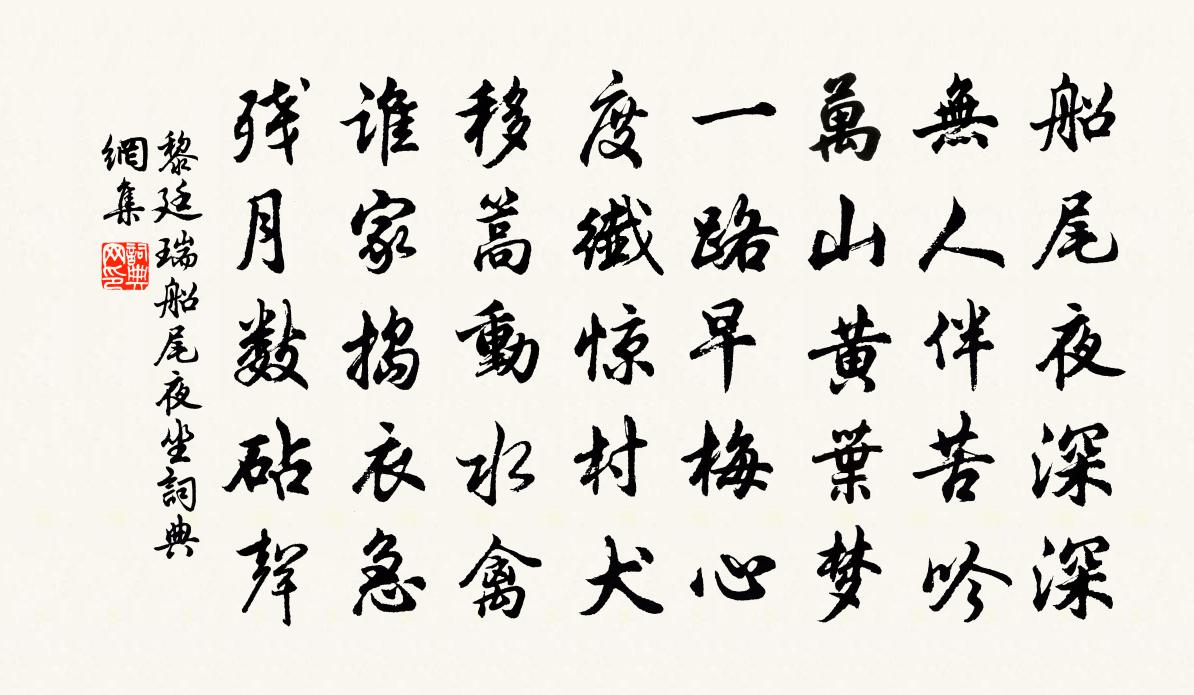 船尾夜深深
無人伴苦吟
萬山黃葉梦
一路早梅心
度纖惊村犬
移篙動水禽
谁家搗衣急
残月數砧聲
黎廷瑞船尾夜坐詞典
網集
詞典
网印